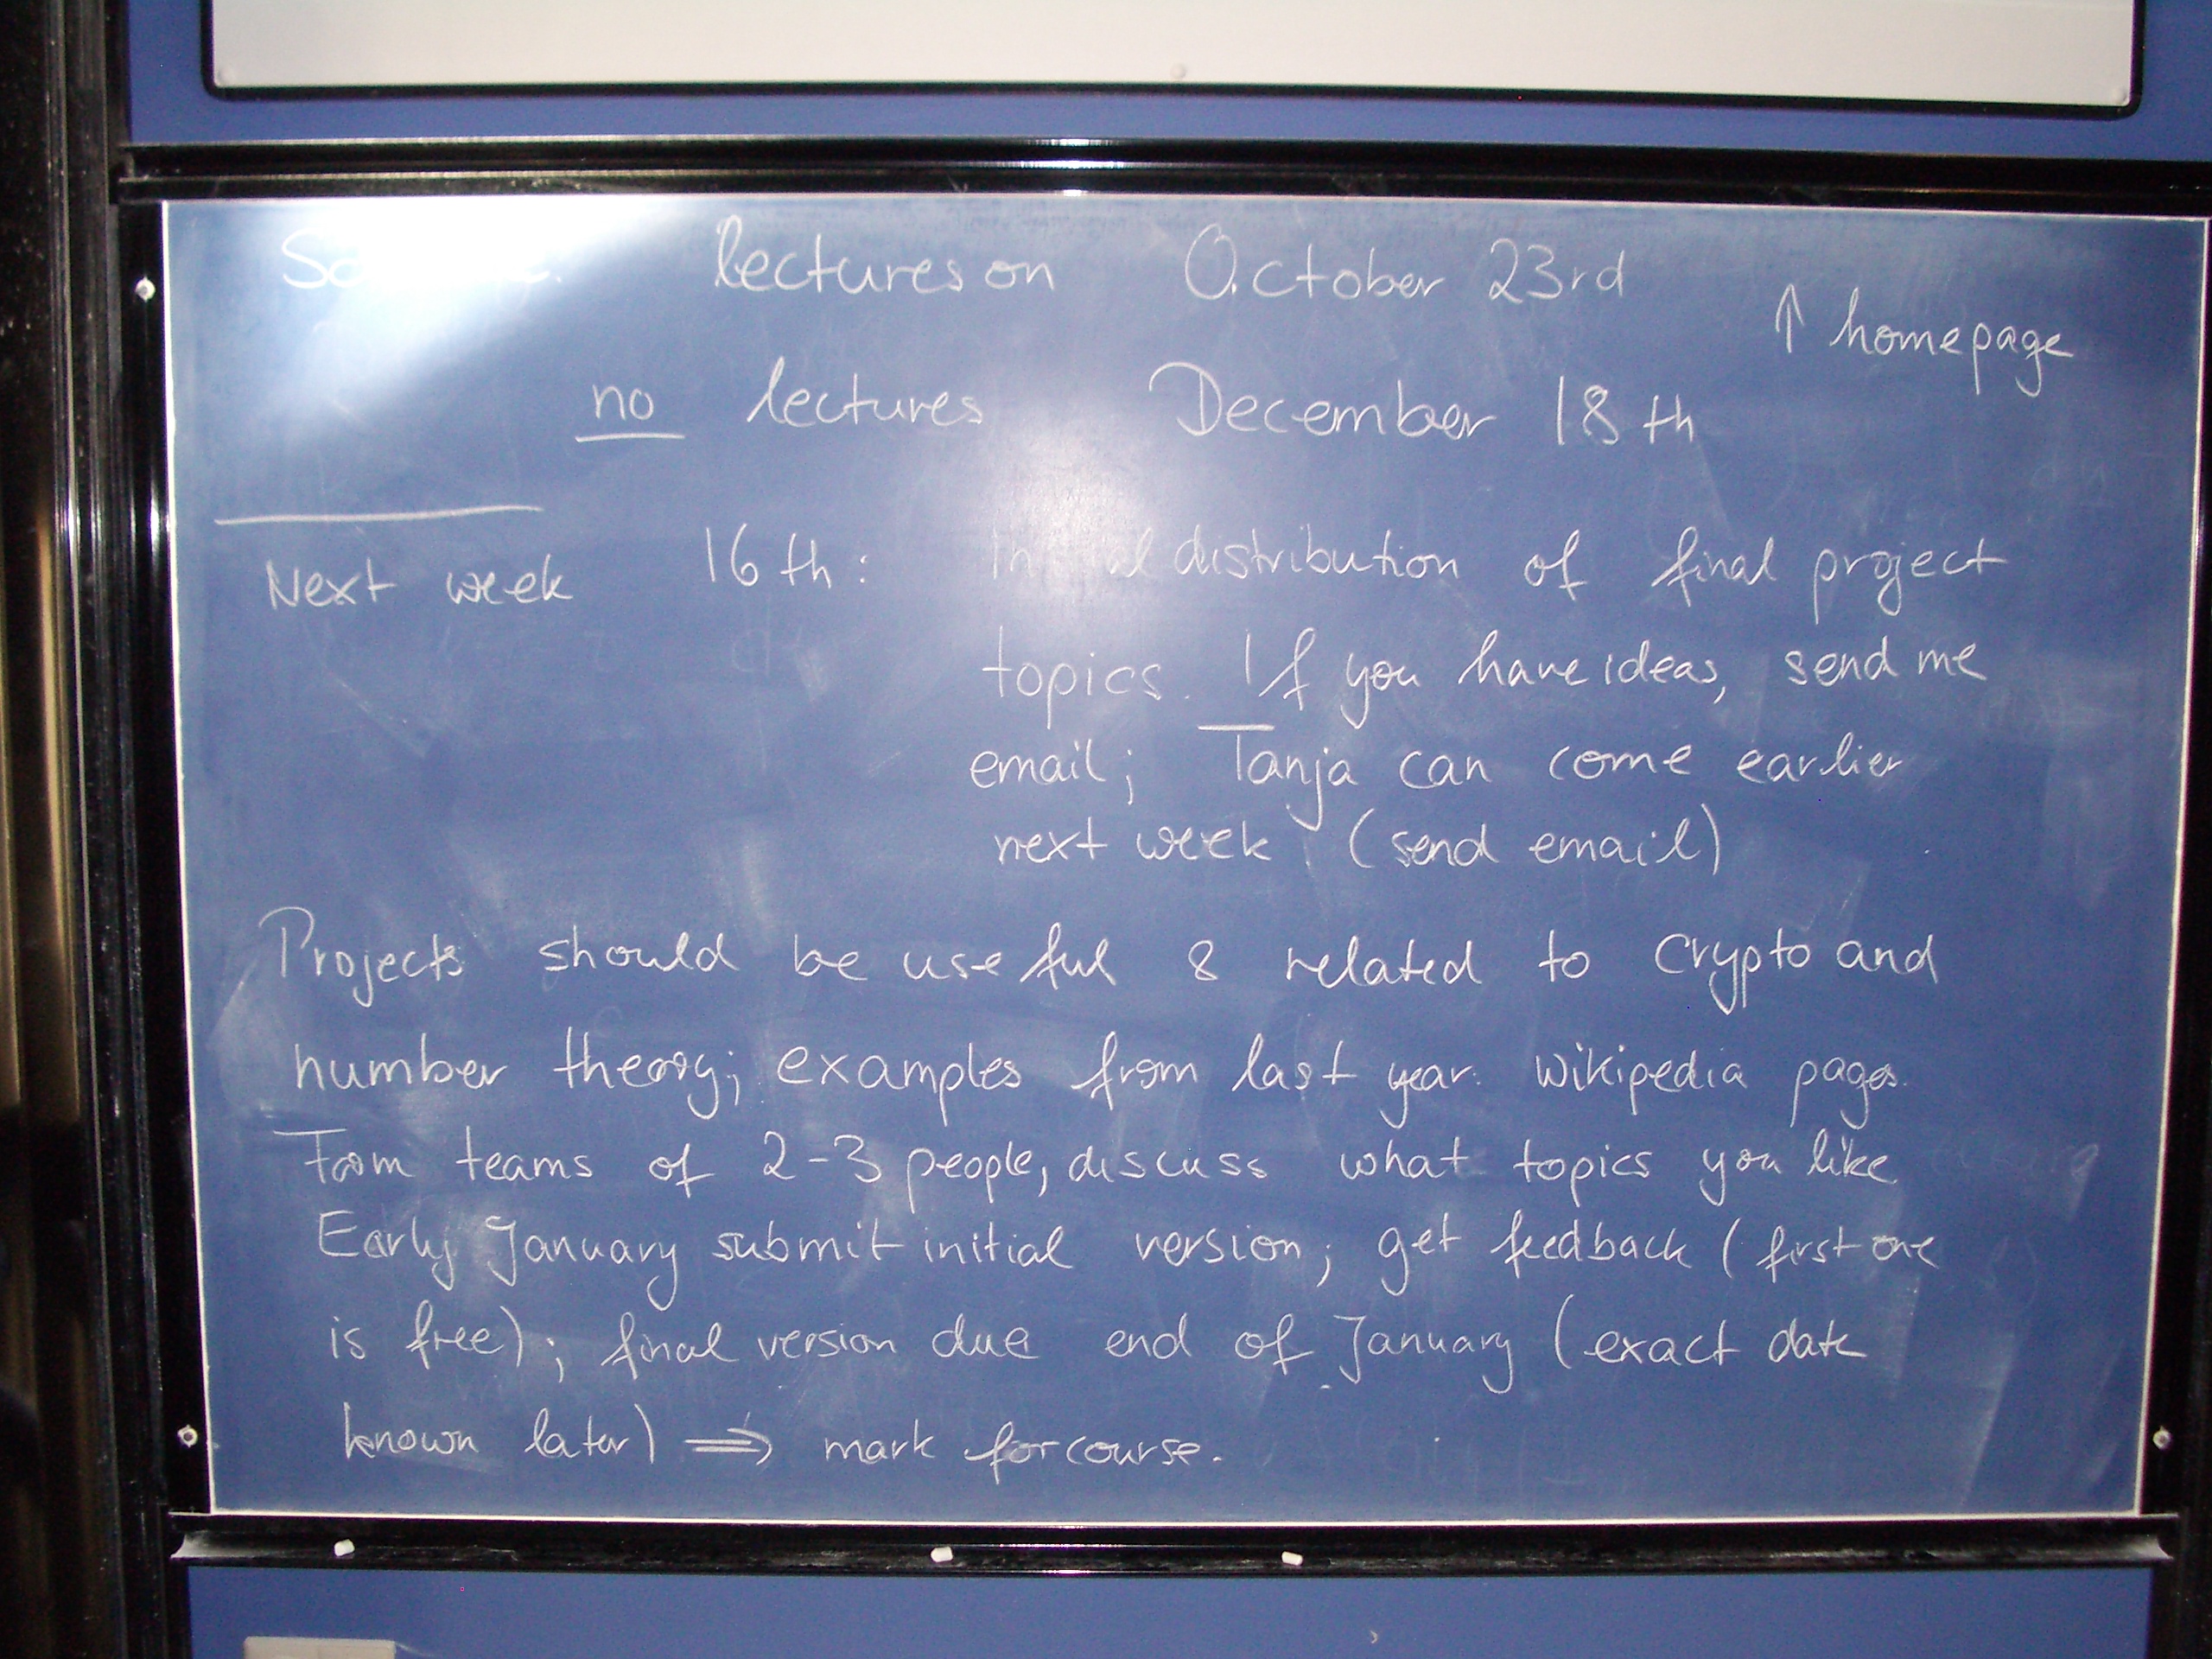 lectures on October 23rd
↑ homepage
no lectures December 18th
Next week 16th: distribution of final project
topics. If you have ideas, send me
email; Tanja can come earlier
next week (send email)
Projects should be useful & related to crypto and
number theory; examples from last year: wikipedia pages.
Form teams of 2-3 people, discuss what topics you like
Early January submit initial version; get feedback (first one
is free); final version due end of January (exact date
known later) ⇒ mark for course.